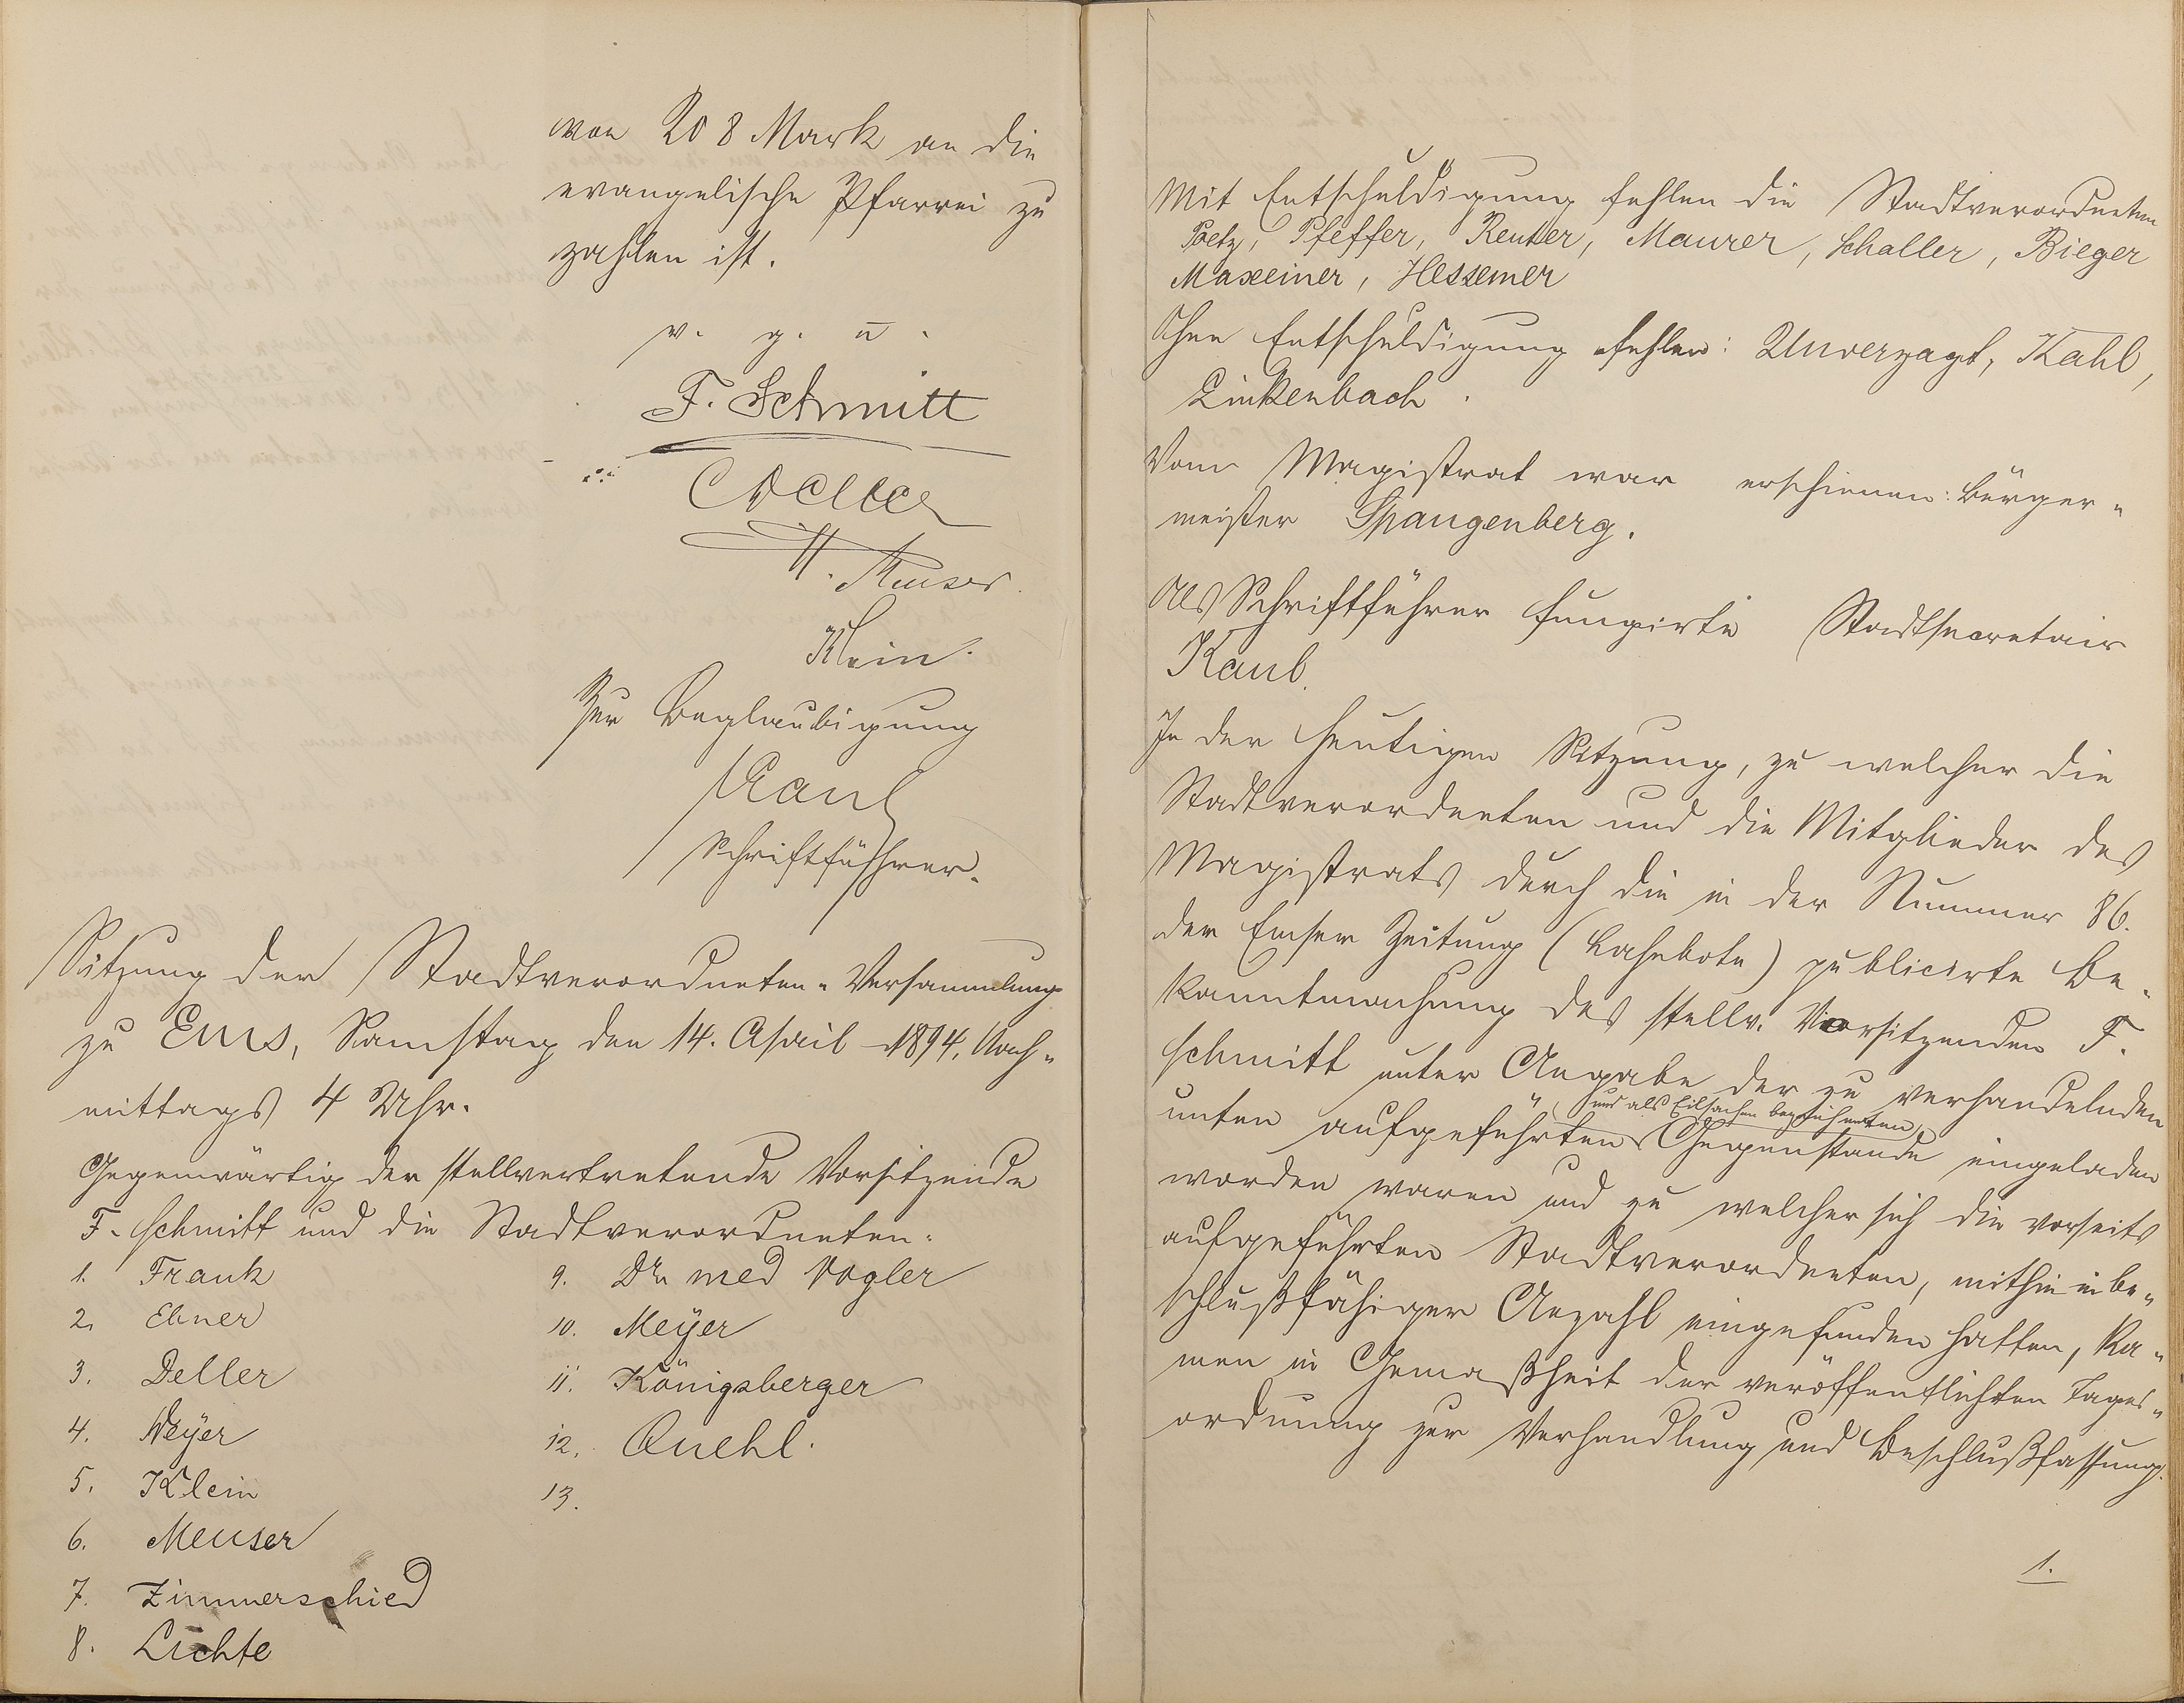 von 208 Mark an die
evangelische Pfarrei zu
zahlen ist.
v. g. u.
F. Schmitt
C Deller
H. Meuser
Klein.
Zur Beglaubigung
Kaul
Schriftführer.
Sitzung der Stadtverordneten-Versammlung
zu Ems, Samstag den 14. April 1894, Nach-
mittags 4 Uhr.
Gegenwärtig der stellvertretende Vorsitzende
F. Schmitt und die Stadtverordneten:
1. Frank
2. Ebner
3. Deller
4. Weyer
5. Klein
6. Meuser
7. Zimmerschied
8. Lichte
9. Dr. med Vogler
10. Meÿer
11. Königsberger
12. Quehl.
13.
Mit Entschuldigung fehlen die Stadtverordneten
Poetz, Pfeffer, Reuter, Maurer, Schaller, Bieger
Maxeiner, Hessemer
Ohne Entschuldigung fehlen: Unverzagt, Kahl,
Linkenbach.
Vom Magistrat war erschienen: Bürger-
meister Spangenberg.
Als Schriftführer fungirte Stadtsecretair
Kaul.
In der heutigen Sitzung, zu welcher die
Stadtverordneten und die Mitglieder des
Magistrats durch die in der Nummer 86.
der Emser Zeitung (Lahnbote) publicirte Be-
kanntmachung des stellv. Vorsitzenden F.
Schmitt unter Angabe der zu verhandelnden
und als Eilsachen bezeichneten
unten aufgeführten Gegenstände eingeladen
worden waren und zu welcher sich die vorseits
aufgeführten Stadtverordneten, mithin in be-
schlußfähiger Anzahl eingefunden hatten, ka-
men in Gemäßheit der veröffentlichten Tages-
ordnung zur Verhandlung und Beschlußfassung.
1.